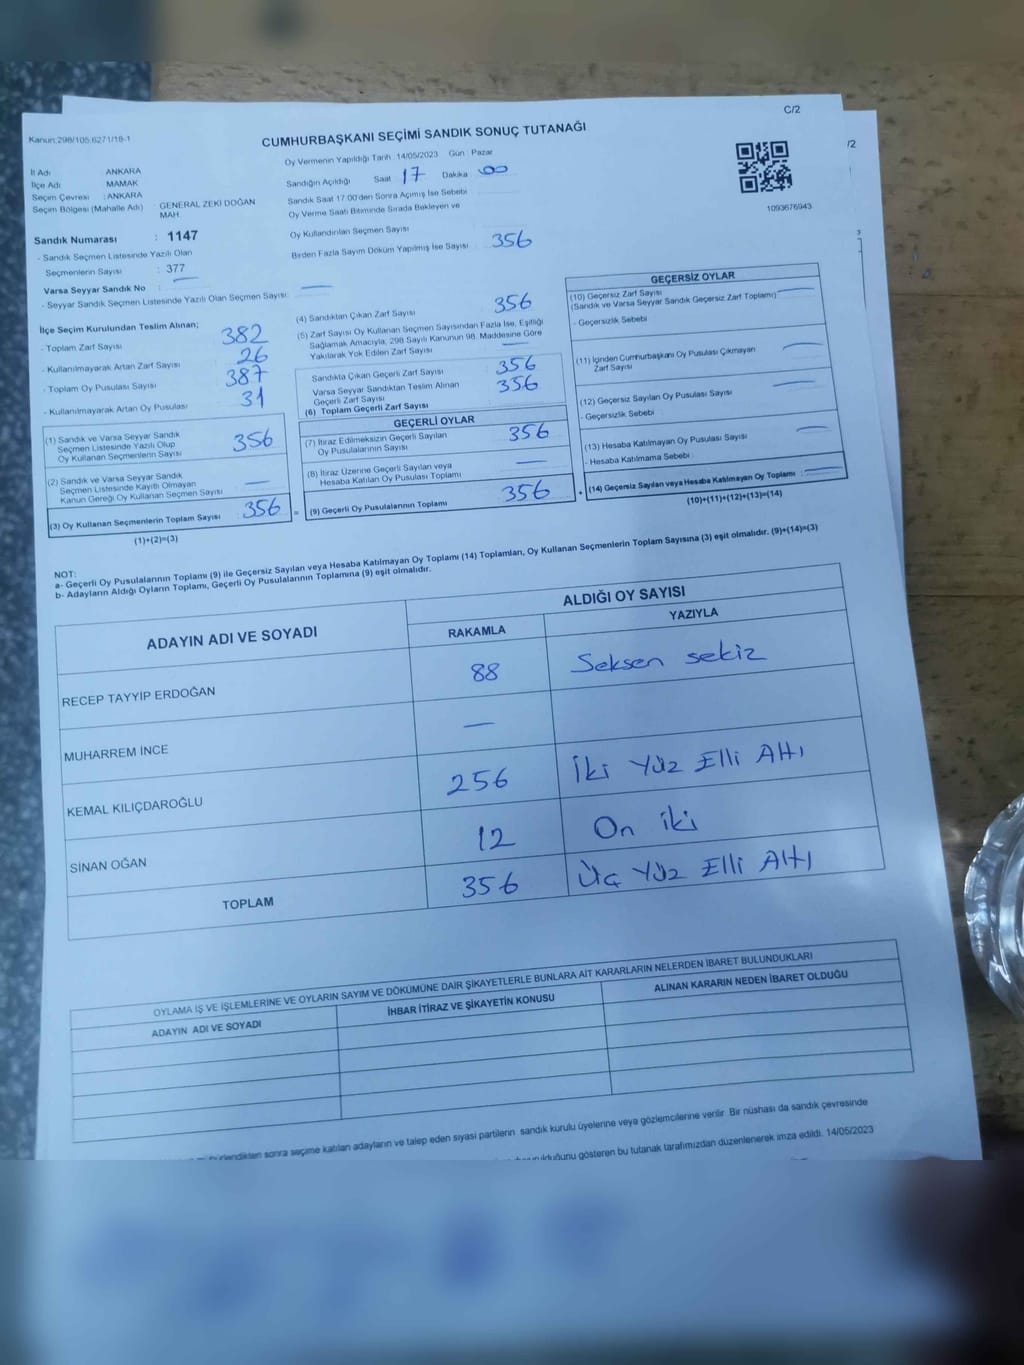 C/2
Kanun:298/105,6271/18-1
CUMHURBAŞKANI SEÇİMİ SANDIK SONUÇ TUTANAĞI
İl Adı : ANKARA
İlçe Adı : MAMAK
Seçim Çevresi : ANKARA
Seçim Bölgesi (Mahalle Adı) : GENERAL ZEKİ DOĞAN MAH.
Sandık Numarası : 1147
- Sandık Seçmen Listesinde Yazılı Olan
Seçmenlerin Sayısı : 377
Varsa Seyyar Sandık No : —
- Seyyar Sandık Seçmen Listesinde Yazılı Olan Seçmen Sayısı: —
Oy Vermenin Yapıldığı Tarih :14/05/2023 Gün : Pazar
Sandığın Açıldığı Saat 17 Dakika 00
Sandık Saat 17:00'den Sonra Açımış İse Sebebi
Oy Verme Saati Bitiminde Sırada Bekleyen ve
Oy Kullandırılan Seçmen Sayısı
Birden Fazla Sayım Döküm Yapılmış İse Sayısı 356
1093676943
/2
İlçe Seçim Kurulundan Teslim Alınan;
- Toplam Zarf Sayısı 382
- Kullanılmayarak Artan Zarf Sayısı 26
- Toplam Oy Pusulası Sayısı 387
- Kullanılmayarak Artan Oy Pusulası 31
(1) Sandık ve Varsa Seyyar Sandık
Seçmen Listesinde Yazılı Olup
Oy Kullanan Seçmenlerin Sayısı 356
(2) Sandık ve Varsa Seyyar Sandık
Seçmen Listesinde Kayıtlı Olmayan
Kanun Gereği Oy Kullanan Seçmen Sayısı —
(3) Oy Kullanan Seçmenlerin Toplam Sayısı 356
(1)+(2)=(3)
(4) Sandıktan Çıkan Zarf Sayısı 356
(5) Zarf Sayısı Oy Kullanan Seçmen Sayısından Fazla İse, Eşitliği
Sağlamak Amacıyla, 298 Sayılı Kanunun 98. Maddesine Göre
Yakılarak Yok Edilen Zarf Sayısı —
Sandıkta Çıkan Geçerli Zarf Sayısı 356
Varsa Seyyar Sandıktan Teslim Alınan
Geçerli Zarf Sayısı 356
(6) Toplam Geçerli Zarf Sayısı
GEÇERLİ OYLAR
(7) İtiraz Edilmeksizin Geçerli Sayılan
Oy Pusulalarının Sayısı 356
(8) İtiraz Üzerine Geçerli Sayılan veya
Hesaba Katılan Oy Pusulası Toplamı —
= (9) Geçerli Oy Pusulalarının Toplamı 356
GEÇERSİZ OYLAR
(10) Geçersiz Zarf Sayısı
(Sandık ve Varsa Seyyar Sandık Geçersiz Zarf Toplamı) —
- Geçersizlik Sebebi
(11) İçinden Cumhurbaşkanı Oy Pusulası Çıkmayan
Zarf Sayısı —
(12) Geçersiz Sayılan Oy Pusulası Sayısı —
- Geçersizlik Sebebi
(13) Hesaba Katılmayan Oy Pusulası Sayısı —
- Hesaba Katılmama Sebebi
+ (14) Geçersiz Sayılan veya Hesaba Katılmayan Oy Toplamı : —
(10)+(11)+(12)+(13)=(14)
NOT:
a- Geçerli Oy Pusulalarının Toplamı (9) ile Geçersiz Sayılan veya Hesaba Katılmayan Oy Toplamı (14) Toplamları, Oy Kullanan Seçmenlerin Toplam Sayısına (3) eşit olmalıdır. (9)+(14)=(3)
b- Adayların Aldığı Oyların Toplamı, Geçerli Oy Pusulalarının Toplamına (9) eşit olmalıdır.
ADAYIN ADI VE SOYADI
ALDIĞI OY SAYISI
RAKAMLA YAZIYLA
RECEP TAYYIP ERDOĞAN 88 Seksen sekiz
MUHARREM İNCE —
KEMAL KILIÇDAROĞLU 256 İki Yüz Elli Altı
SİNAN OĞAN 12 On iki
TOPLAM 356 Üç Yüz Elli Altı
OYLAMA İŞ VE İŞLEMLERİNE VE OYLARIN SAYIM VE DÖKÜMÜNE DAİR ŞİKAYETLERLE BUNLARA AİT KARARLARIN NELERDEN İBARET BULUNDUKLARI
ADAYIN ADI VE SOYADI İHBAR İTİRAZ VE ŞİKAYETİN KONUSU ALINAN KARARIN NEDEN İBARET OLDUĞU
sonra seçime katılan adayların ve talep eden siyasi partilerin sandık kurulu üyelerine veya gözlemcilerine verilir. Bir nüshası da sandık çevresinde
gösteren bu tutanak tarafımızdan düzenlenerek imza edildi. 14/05/2023